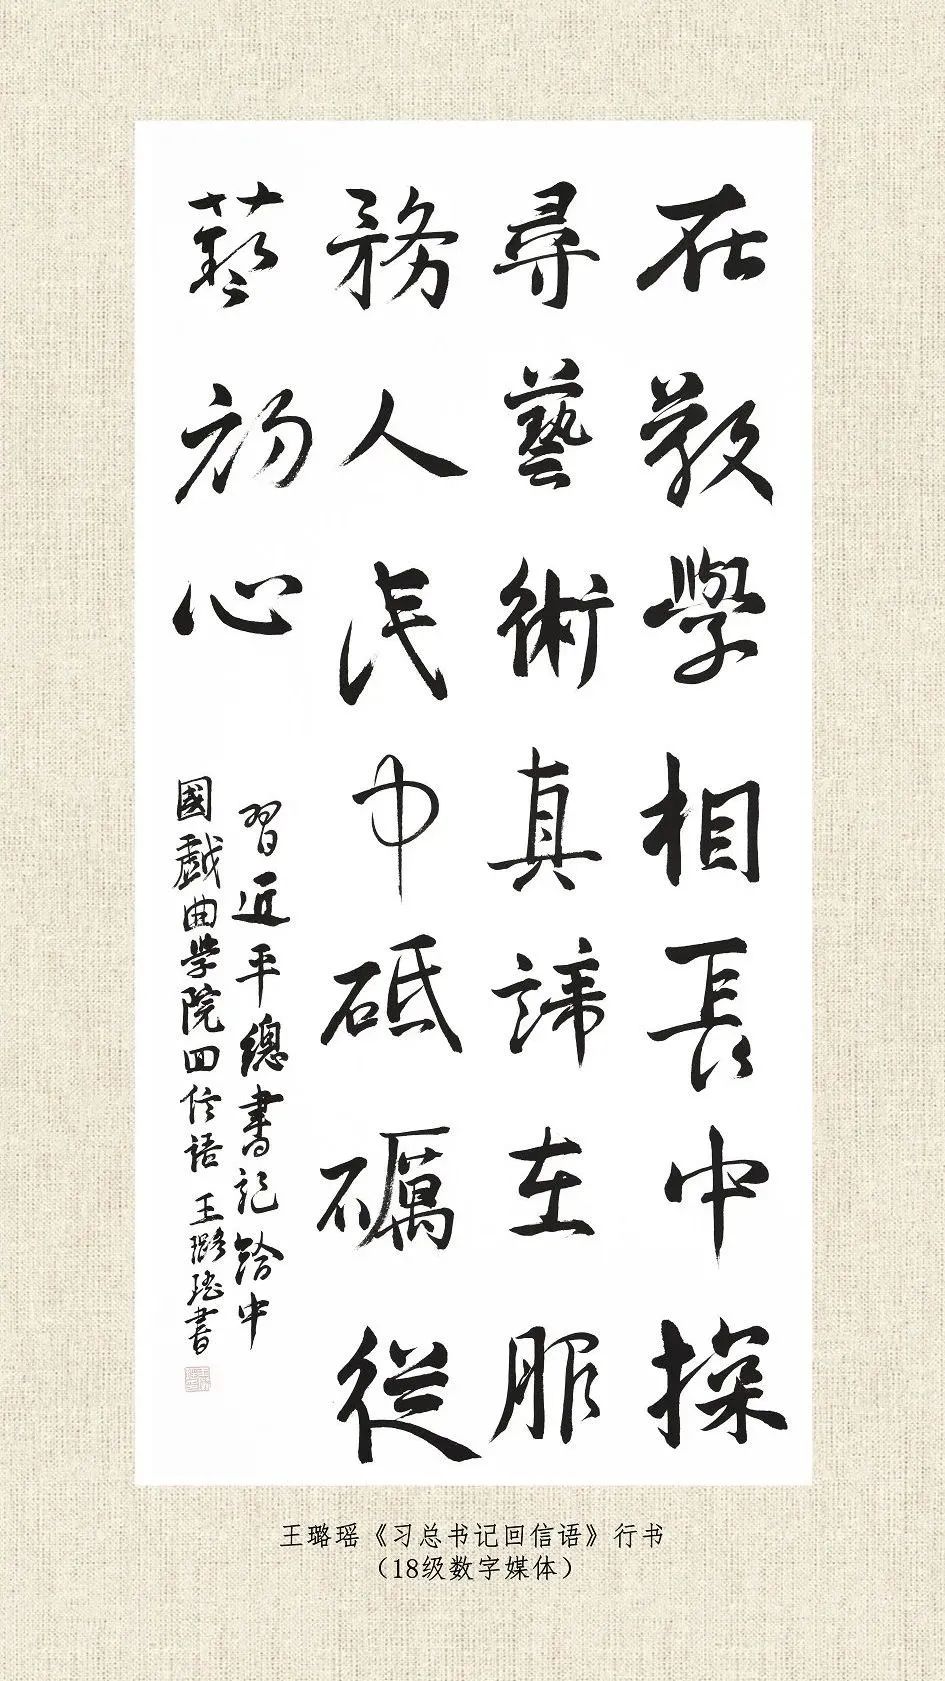 在教學相長中探
尋藝術真諦在服
務人民中砥礪從
藝初心
習近平總書記給中
國戲曲學院回信語 王璐瑤書
王璐瑶《习总书记回信语》行书
（18级数字媒体）